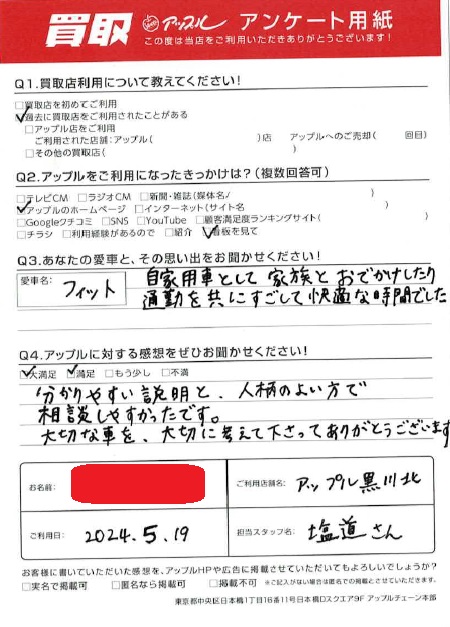 買取 アップル アンケート用紙
この度は当店をご利用いただきありがとうございます!
Q1.買取店利用について教えてください!
□買取店を初めてご利用
☑過去に買取店をご利用されたことがある
□アップル店をご利用
ご利用された店舗:アップル( )店 アップルへのご売却( 回目)
□その他の買取店( )
Q2.アップルをご利用になったきっかけは?(複数回答可)
□テレビCM □ラジオCM □新聞・雑誌(媒体名/ )
☑アップルのホームページ □インターネット(サイト名 )
□Googleクチコミ □SNS □YouTube □顧客満足度ランキングサイト( )
□チラシ □利用経験があるので □紹介 ☑看板を見て
Q3.あなたの愛車と、その思い出をお聞かせください!
愛車名: フィット 自家用車として家族とおでかけしたり
通勤を共にすごして快適な時間でした
Q4.アップルに対する感想をぜひお聞かせください!
☑大満足 ☑満足 □もう少し □不満
分かりやすい説明と、人柄のよい方で
相談しやすかったです。
大切な車を、大切に考えて下さってありがとうございます
お名前: ご利用店舗名: アップル黒川北
ご利用日: 2024.5.19 担当スタッフ名: 塩道さん
お客様に書いていただいた感想を、アップルHPや広告に掲載させていただいてもよろしいでしょうか?
□実名で掲載可 □匿名なら掲載可 □掲載不可 ※ご記入がない場合は匿名での掲載とさせていただきます。
東京都中央区日本橋1丁目16番11号日本橋Dスクエア9F アップルチェーン本部